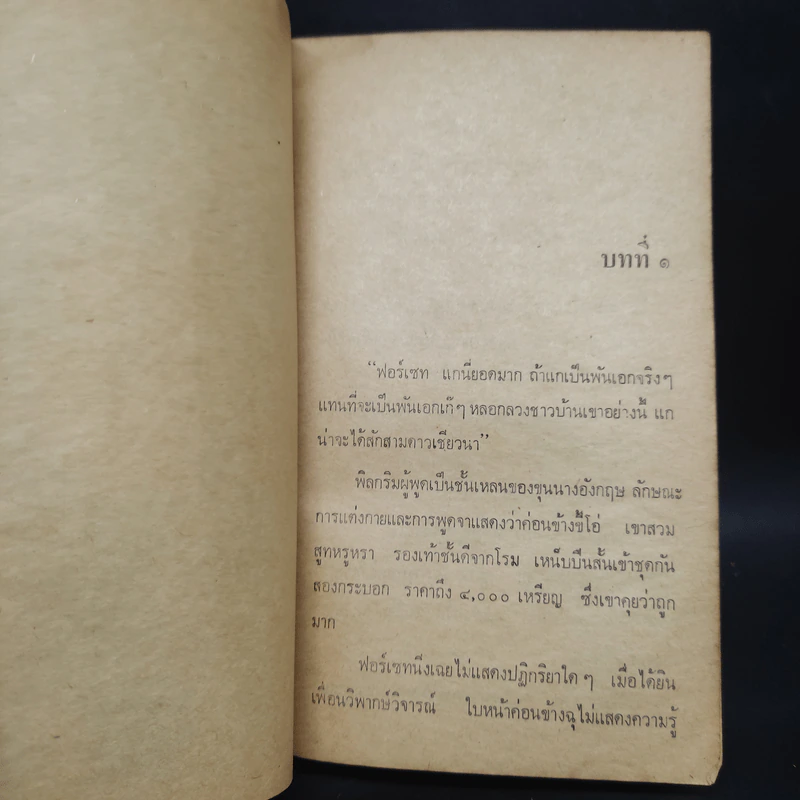 บทที่ ๑
“ฟอร์เซท แกนี่ยอดมาก ถ้าแกเป็นพันเอกจริงๆ
แทนที่จะเป็นพันเอกเก๊ๆ หลอกลวงชาวบ้านเขาอย่างนี้ แก
น่าจะได้สักสามดาวเชียวนา”
พิลกริมผู้พูดเป็นชั้นเหลนของขุนนางอังกฤษ ลักษณะ
การแต่งกายและการพูดจาแสดงว่าค่อนข้างขี้โอ่ เขาสวม
สูทหรูหรา รองเท้าชั้นดีจากโรม เหน็บปืนสั้นเข้าชุดกัน
สองกระบอก ราคาถึง ๔,๐๐๐ เหรียญ ซึ่งเขาคุยว่าถูก
มาก
ฟอร์เซทนิ่งเฉยไม่แสดงปฏิกริยาใดๆ เมื่อได้ยิน
เพื่อนวิพากษ์วิจารณ์ ใบหน้าค่อนข้างฉุไม่แสดงความรู้